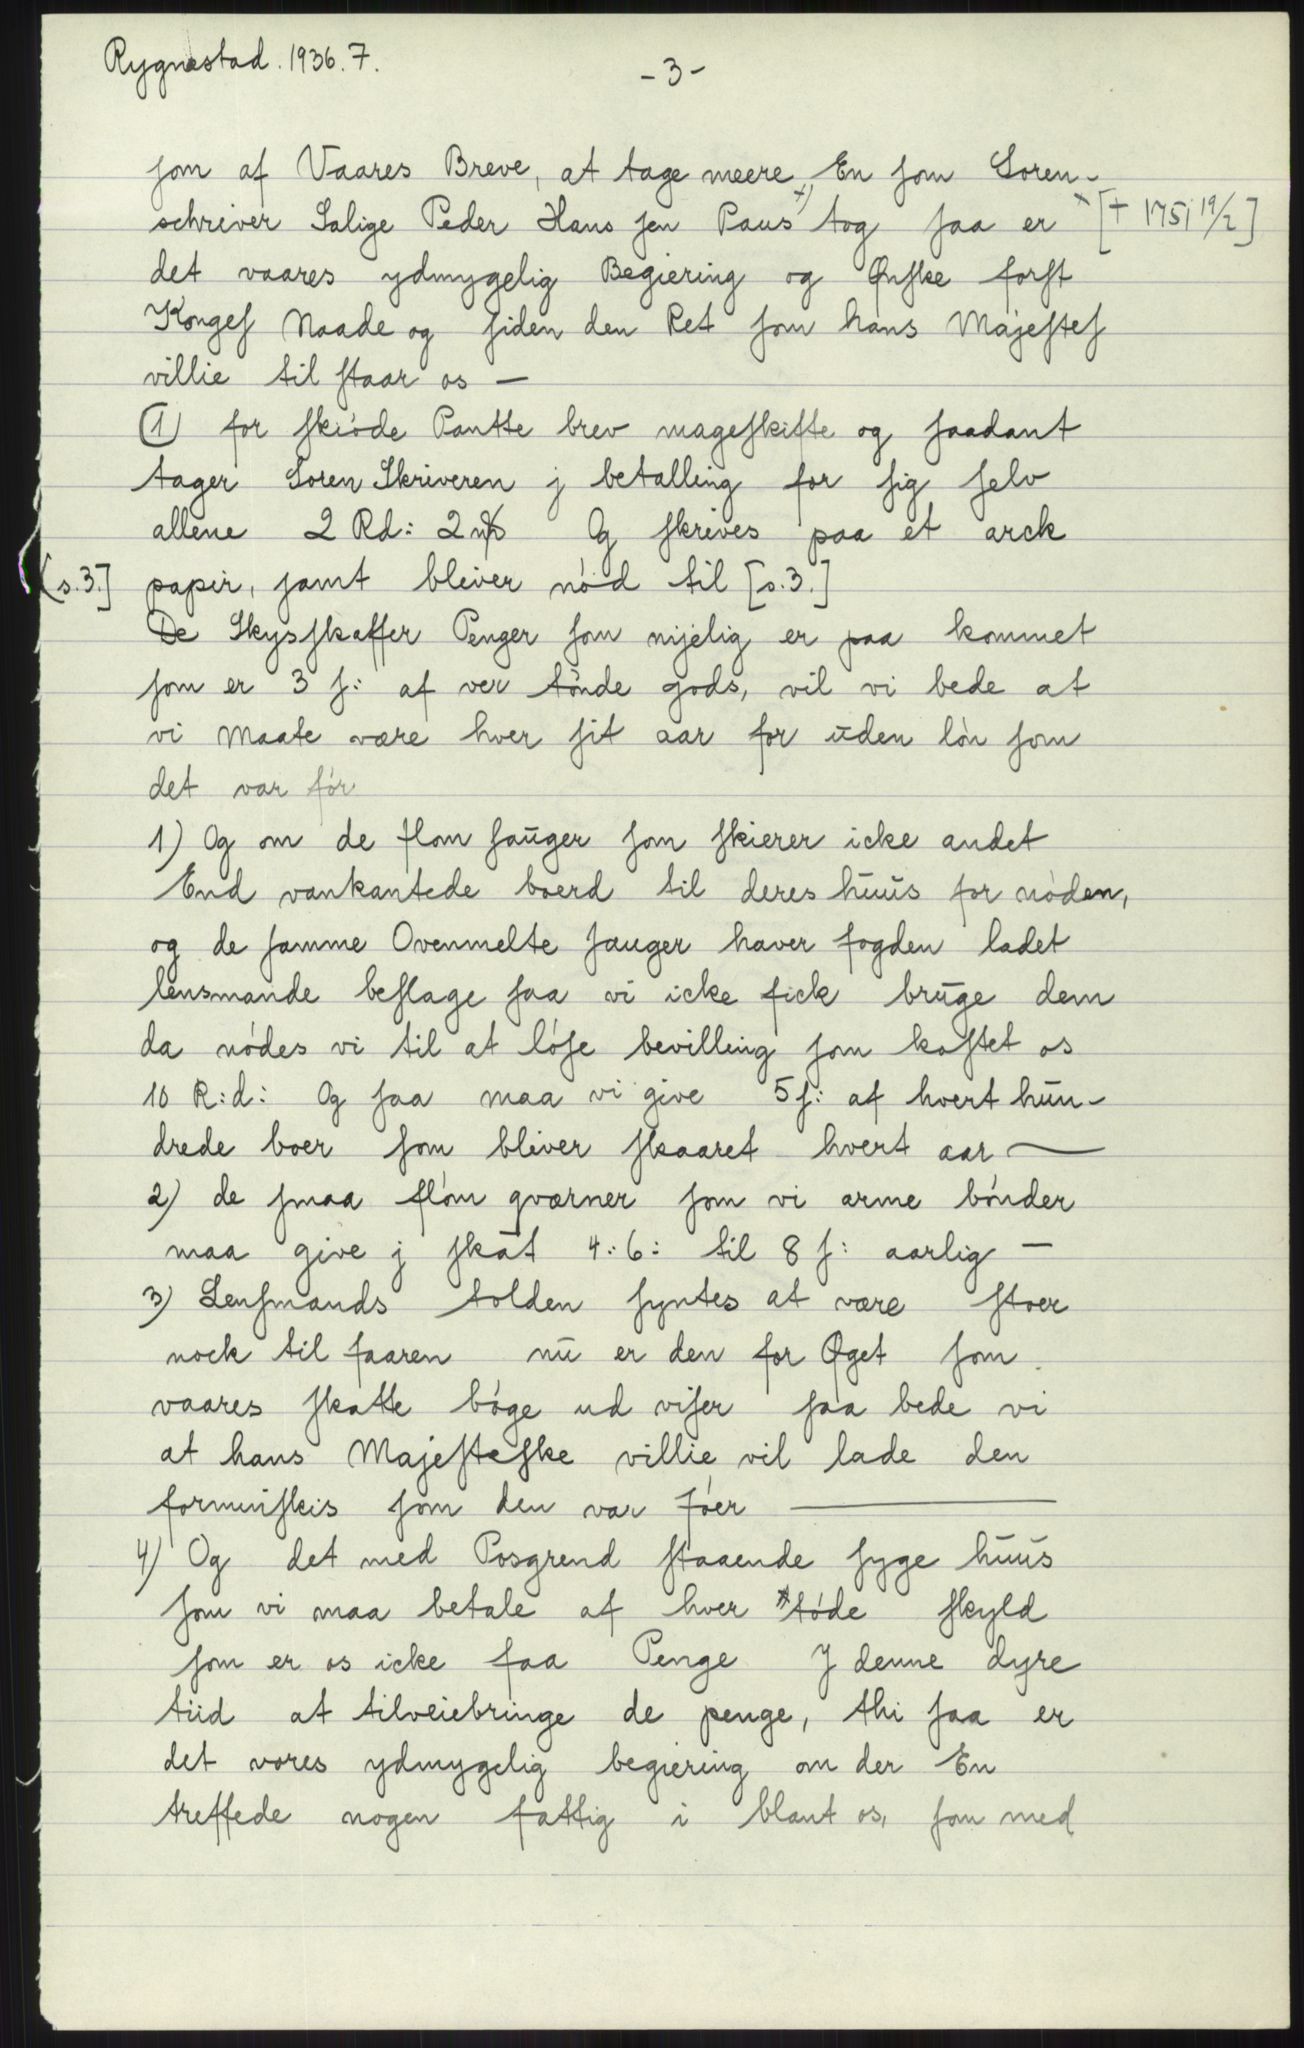 Rygnestad. 1936. 7.
- 3 -
som af Vaares Breve, at tage meere En som Soren-
schriver Salige Peder Hans sen Paus x) tog saa er x [† 1751 19/2]
det vaares ydmygelig Begiering og Ønske forst
Konges Naade og siden den Ret som hans Majestes
villie til staar os —
(1) for skiøde Pantte brev mageskifte og saadant
tager Soren Skriveren j betalling for sig selv
allene 2 Rd: 2 mk Og skrives paa et arck
(s.3.] papir, samt bliver nød til [s.3.]
De Skysskaffer Penger som nijelig er paa kommet
som er 3 s: af ver tønde gods, vil vi bede at
vi maate være hver sit aar for uden løn som
det var før
1) Og om de flom sauger som skierer icke andet
End vankantede boerd til deres huus for nøden,
og de samme Ovenmelte sauger haver fogden ladet
lensmande beslage saa vi icke fick bruge dem
da nødes vi til at løse bevilling som kostet os
10 R:d: Og saa maa vi give 5 s: af hvert hun-
drede boer som bliver skaaret hvert aar —
2) de smaa fløm qværner som vi arme bønder
maa give j skat 4:6: til 8 s: aarlig —
3) Lensmands tolden syntes at være stoer
nock til faaren nu er den for Øget som
vaares skatte bøge ud viser saa bede vi
at hans Majesteske villie vil lade den
forminskis som den var føer —
4) Og det med Posgrend staaende syge huus
som vi maa betale af hver tøde skyld
som er os icke faa Penge J denne dyre
tiid at tilveiebringe de penge, thi saa er
det vores ydmygelig begiering om der En
treffede nogen fattig i blant os, som med